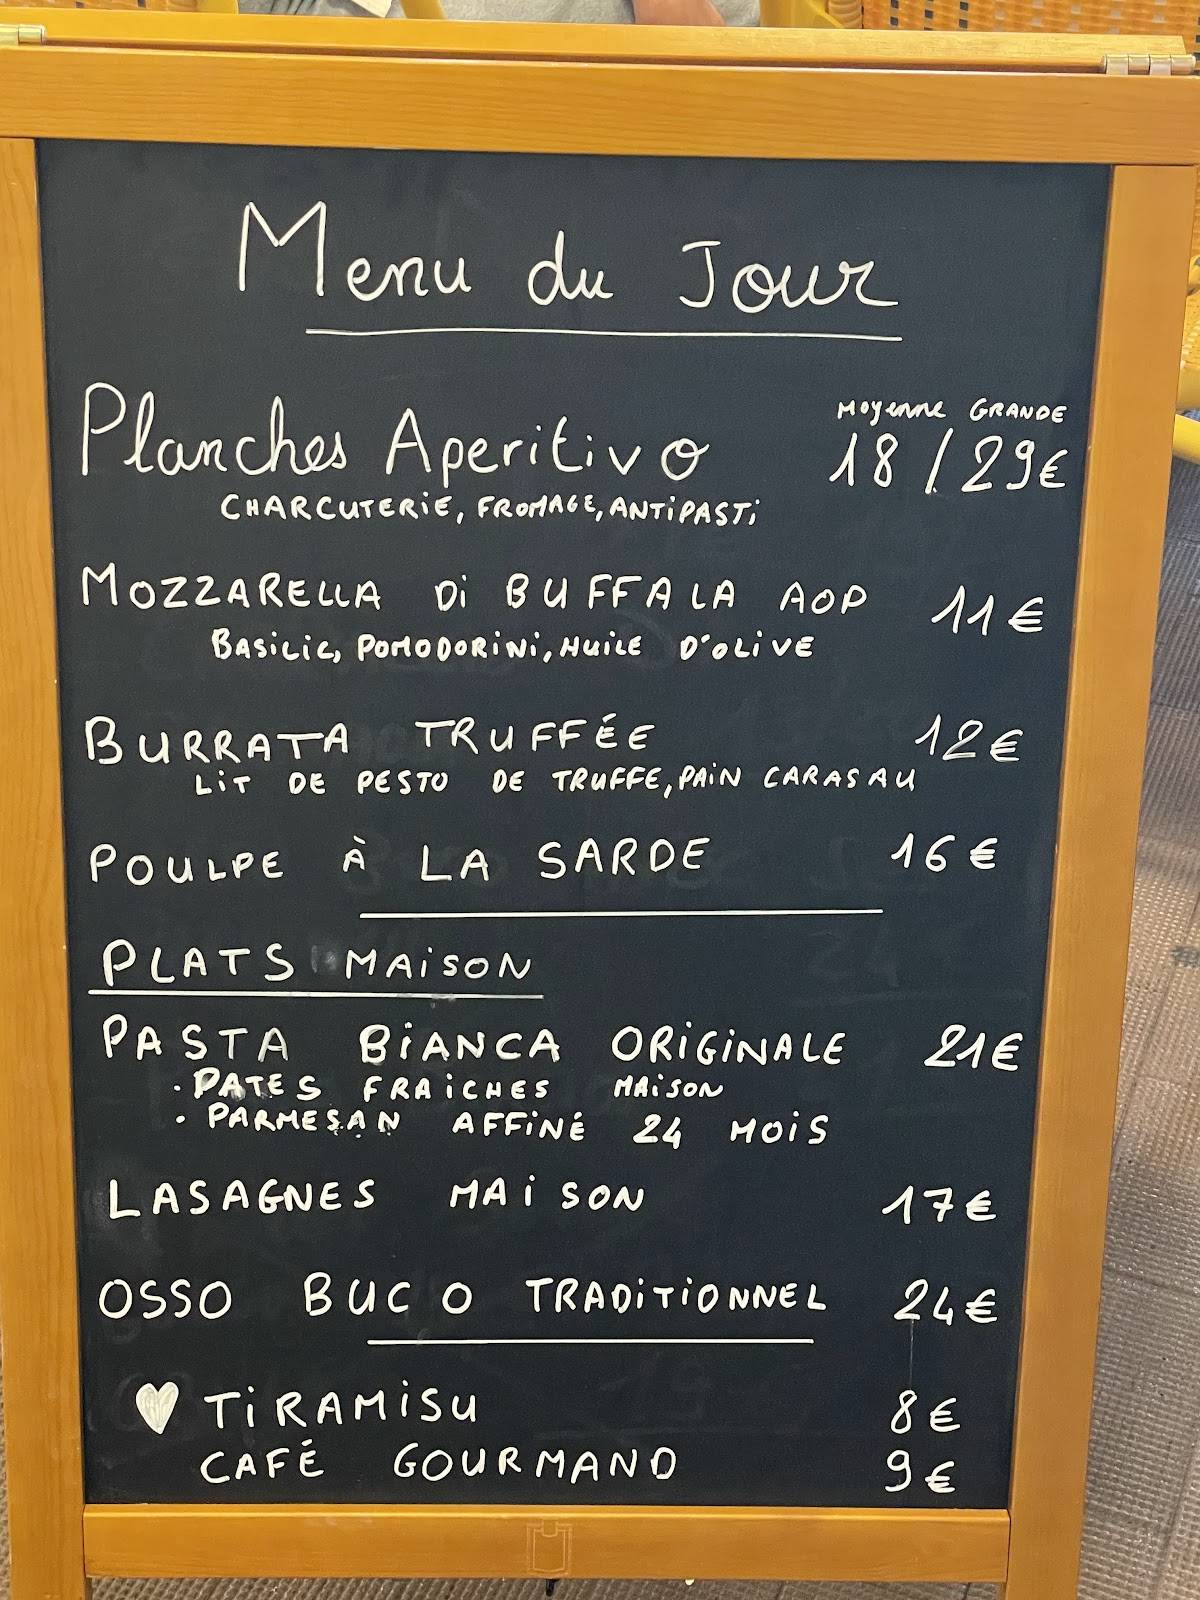 Menu du Jour
Moyenne GRANDE
Planches Aperitivo 18 / 29€
CHARCUTERIE, FROMAGE, ANTIPASTI
MOZZARELLA Di BUFFALA AOP 11€
BASILIC, POMODORINI, HUILE D'OLIVE
BURRATA TRUFFÉE 12€
LIT DE PESTO DE TRUFFE, PAIN CARASAU
POULPE À LA SARDE 16€
PLATS MAISON
PASTA BIANCA ORIGINALE 21€
· PATES FRAICHES MAISON
· PARMESAN AFFINÉ 24 MOIS
LASAGNES MAISON 17€
OSSO BUCO TRADITIONNEL 24€
♥ TIRAMISU 8€
CAFÉ GOURMAND 9€